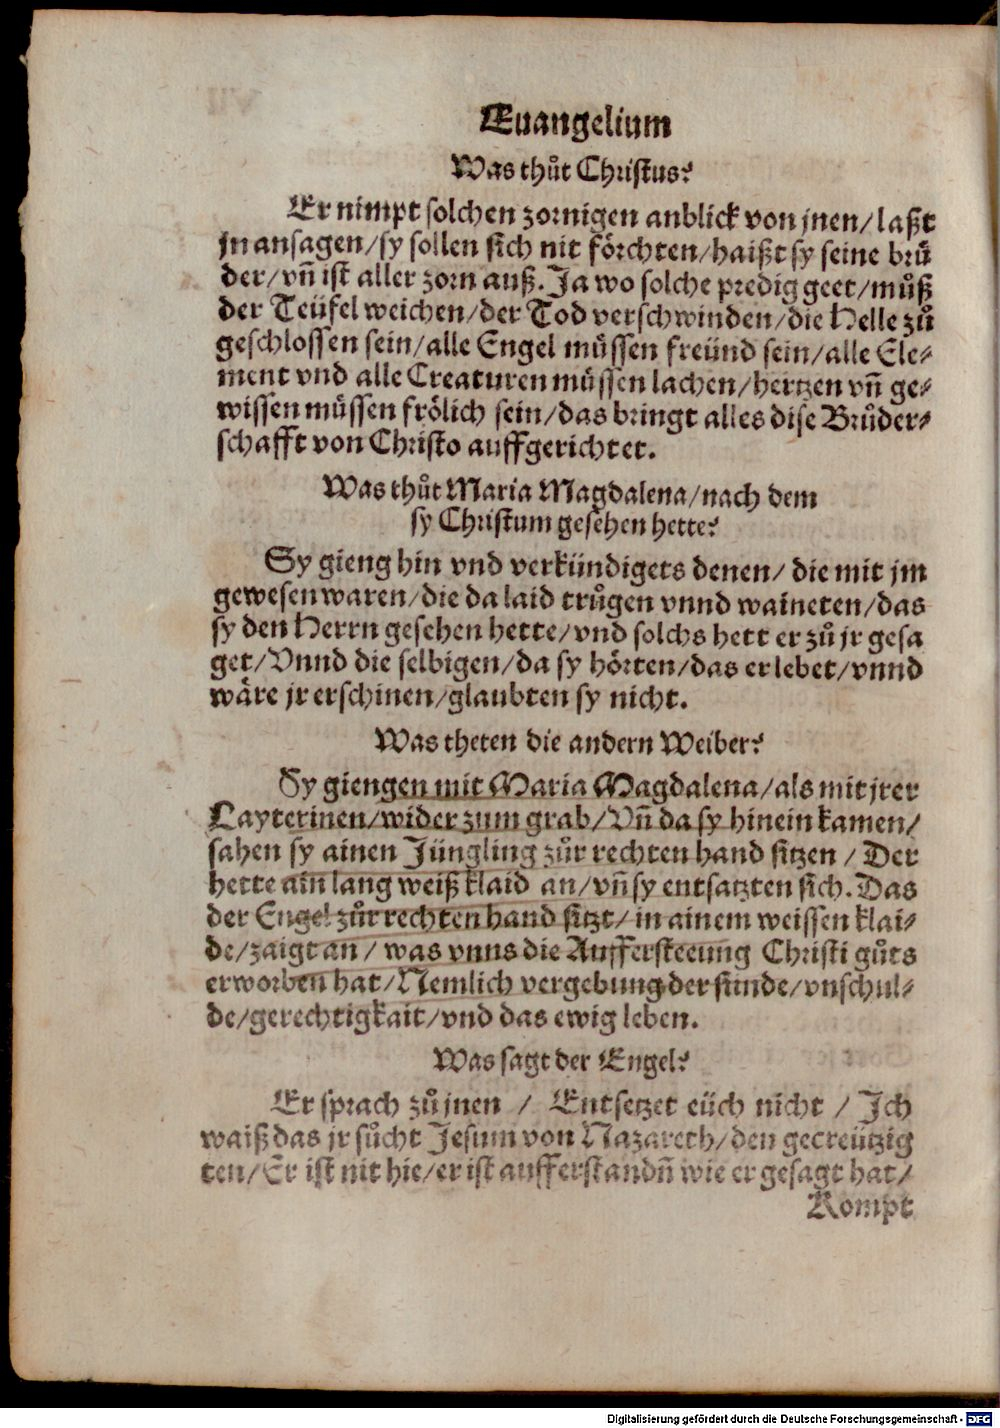 Euangelium
Was thůt Christus?
Er nimpt solchen zornigen anblick von jnen/laßt
jn ansagen/sy sollen sich nit förchten/haißt sy seine brů
der/vñ ist aller zorn auß. Ja wo solche predig geet/můß
der Teüfel weichen/der Tod verschwinden/die Helle zů
geschlossen sein/alle Engel müssen freünd sein/alle Ele⸗
ment vnd alle Creaturen müssen lachen/hertzen vñ ge⸗
wissen müssen frölich sein/das bringt alles dise Brůder⸗
schafft von Christo auffgerichtet.
Was thůt Maria Magdalena/nach dem
sy Christum gesehen hette?
Sy gieng hin vnd verkündigets denen/ die mit jm
gewesen waren/die da laid trůgen vnnd waineten/das
sy den Herrn gesehen hette/vnd solchs hett er zů jr gesa
get/Vnnd die selbigen/da sy hörten/das er lebet/vnnd
wäre jr erschinen/glaubten sy nicht.
Was theten die andern Weiber?
Sy giengen mit Maria Magdalena/als mit jrer
Layterinen/wider zum grab/Vñ da sy hinein kamen/
sahen sy ainen Jüngling zůr rechten hand sitzen / Der
hette ain lang weiß klaid an/vñ sy entsatzten sich. Das
der Engel zůr rechten hand sitzt/in ainem weissen klai⸗
de/zaigt an/ was vnns die Auffersteeung Christi gůts
erworben hat/Nemlich vergebung der sünde/vnschul⸗
de/gerechtigkait/vnd das ewig leben.
Was sagt der Engel?
Er sprach zů jnen / Entsetzet eüch nicht / Jch
waiß das jr sůcht Jesum von Nazareth/den gecreützig
ten/Er ist nit hie/er ist aufferstandñ wie er gesagt hat/
Kompt
Digitalisierung gefördert durch die Deutsche Forschungsgemeinschaft - DFG